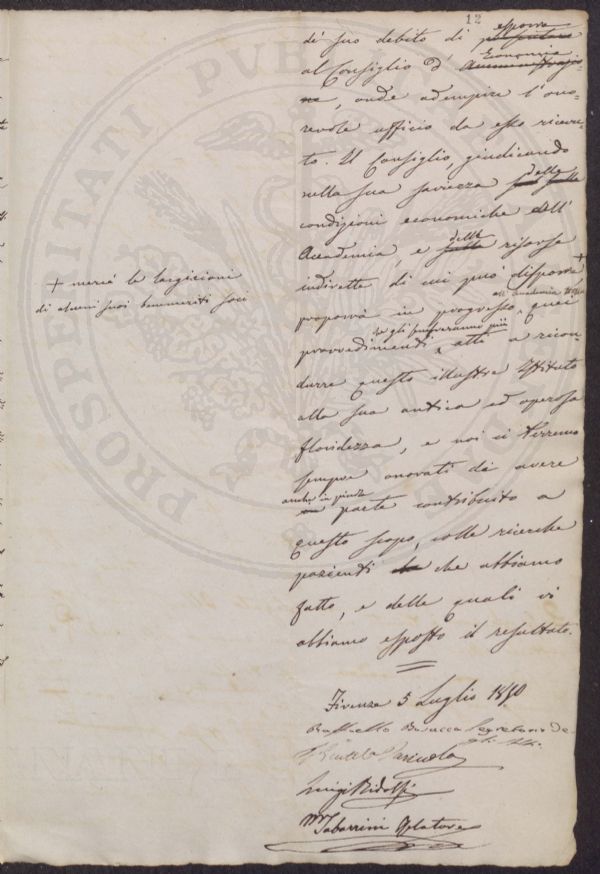 12
esporre
di suo debito di presentare
Economia
al Consiglio d' Amministrazio-
ne, onde adempire l'ono-
revole ufficio da esso ricevu-
to. Il Consiglio, giudicando
nella sua saviezza delle
condizioni economiche dell'
Accademia, e delle risorse
indirette di cui può disporre +
+ mercè le largizioni
di alcuni suoi benemeriti soci
all'Accademia
proporrà in progresso quei
se gli sembreranno più
provvedimenti, atti a ricon-
durre questo illustre Istituto
alla sua antica ed operosa
floridezza, e noi ci terremo
sempre onorati di avere
anche in piccola
parte contribuito a
questo scopo, colle ricerche
pazienti che abbiamo
fatto, e delle quali vi
abbiamo esposto il resultato.
Firenze 5 Luglio 1850
Raffaello Busacca Segretario de-
gli Atti
Luigi Ridolfi
M Tabarrini Relatore
PROSPERITATI PUBLICAE